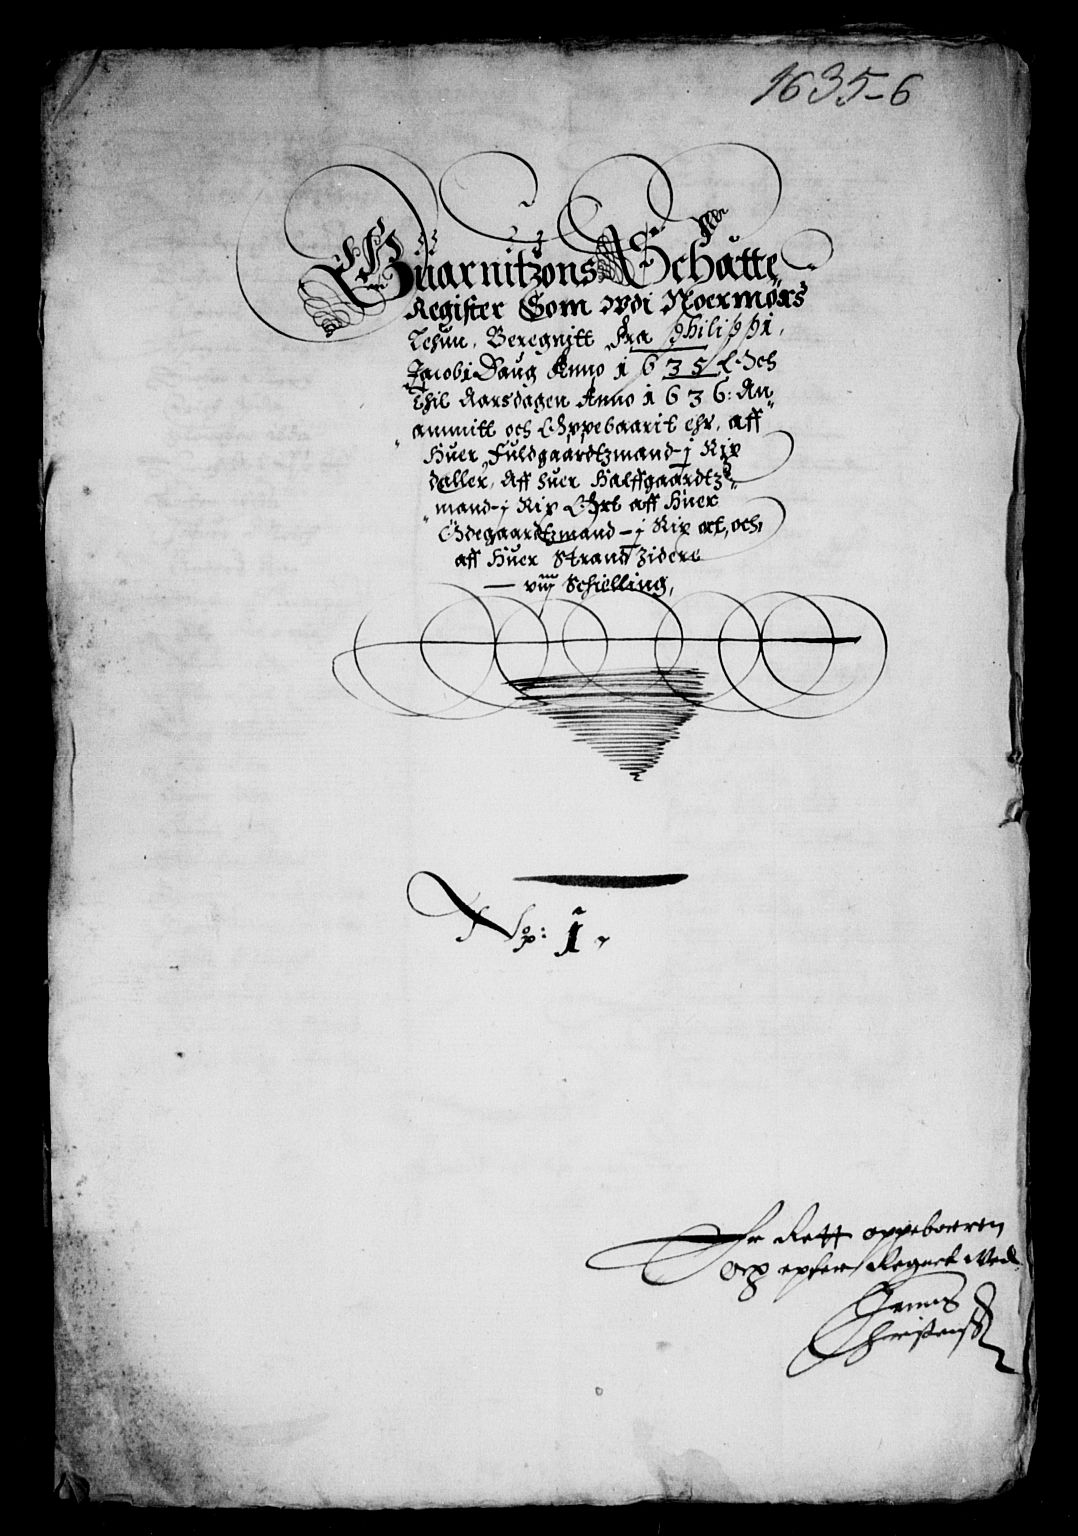 1635-6
Guarnitzons Schatte
Register Som udi Noermørs
Lehun, Beregnitt fra Philippi
Jacobi Daug Anno 1635 Och
Thil Aarsdagen Anno 1636: An
ammitt och Oppebaarit ehr, aff
Huer Fuldgaardtzmand - j Rix
daller, Aff huer Halffgaardtz
mand - j Rix Ort aff Huer
Ødegaardtzmand - j Rix ort, och
aff Huer Strandzidere
viij Schielling,
No: 1
Er Rett oppeboeren
och epther Regnet Ved
Christenss